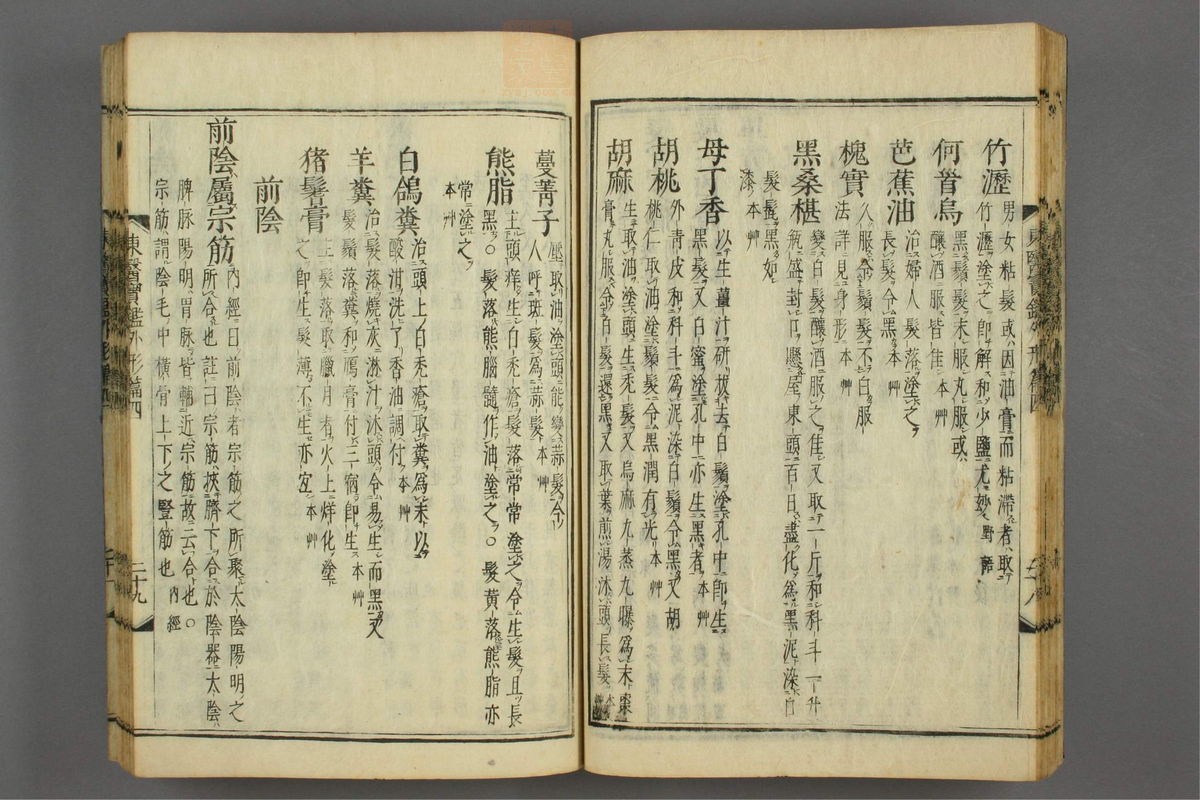 竹瀝
男女粘髮或因油膏而粘滯者取
竹瀝塗之即解和少鹽尤妙 野語
何首烏
黑鬚髮末服丸服或
釀酒服皆佳 本艸
芭蕉油
治婦人髮落塗之
長髮令黑 本艸
槐實
久服令鬚髮不白服
法詳見身形 本艸
黑桑椹
變白髮釀酒服之佳又取一斤和科斗一升
甁盛封口懸屋東頭百日盡化爲黑泥染白
髮髭黑如
漆 本艸
母丁香
以生薑汁研拔去白鬚塗孔中即生
黑髮又白蜜塗孔中亦生黑者 本艸
胡桃
外靑皮和科斗爲泥染白鬚令黑又胡
桃仁取油塗鬚髮令黑潤有光 本艸
胡麻
生取油塗頭生禿髮又烏麻九蒸九曝爲末棗
膏丸服令白髮還黑又取葉煎湯沐頭長髮 本艸
東醫寶鑑外形篇四
二十八
蔓菁子
壓取油塗頭能變蒜髮令
人呼斑髮爲蒜髮 本艸
熊脂
主頭痒生白禿瘡髮落常常塗之令生髮且長
黑○髮落熊腦髓作油塗之○髮黃落熊脂亦
常塗之
本艸
白鴿糞
治頭上白禿瘡取糞爲末以
酸泔洗了香油調付 本艸
羊糞
治髮落燒灰淋汁沐頭令易生而黑又
髮鬚落糞灰和鴈膏付三宿即生 本艸
猪鬐膏
主髮落取臘月者火上烊化塗
之即生髮薄不生亦宜 本艸
前陰
前陰屬宗筋
內經曰前陰者宗筋之所聚太陰陽明之
所合也註曰宗筋挾臍下合於陰器太陰
脾脉陽明胃脉皆輔近宗筋故云合也○
宗筋謂陰毛中橫骨上下之竪筋也 內經
東醫寶鑑外形篇四
二十九